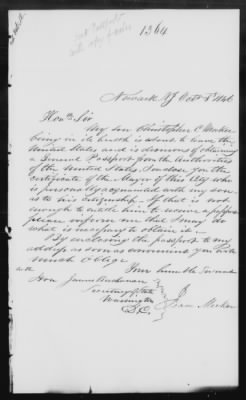 1364
Newark NJ Octr 5th 1846
Honble Sir
My son Christopher C Meeker
being in ill health is about to leave the
United States and is desirous of obtaining
a General Passport from the Authorities
of the United States, I enclose you the
Certificate of the Mayor of this City who
is personally acquainted with my son
as to his citizenship. If that is not
enough to enable him to receive a passport
please inform me that I may do
what is necessary to obtain it.
By enclosing the passport to my
address as soon as convenient you will
much Oblige
Your humble Servant
Meeker
Hon James Buchanan
Secretary of State
Washington
D.C.